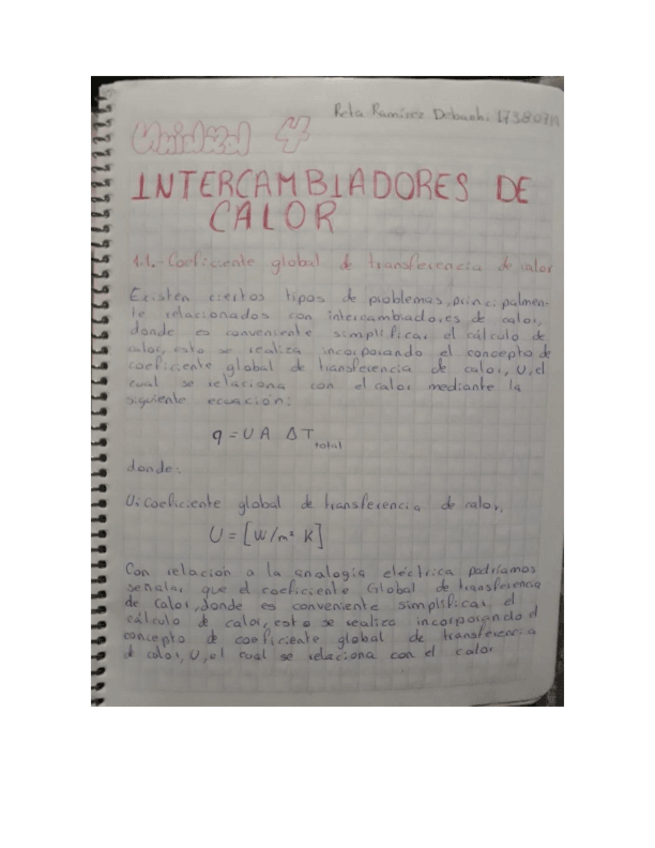 Reta Ramírez Deborah.
Unidad 4
INTERCAMBIADORES DE
CALOR
1.1.- Coeficiente global d transferencia de calor
Existen ciertos tipos de problemas, principalmen-
te relacionados con intercambiadores de calor,
donde es conveniente simplificar el cálculo de
calor, esto se realiza incorporando el concepto de
coeficiente global de transferencia de calor, U, el
cual se relaciona con el calor mediante la
siguiente ecuación:
q = U A ΔT total
donde:
U: Coeficiente global de transferencia de calor,
U = [W/m² K]
Con relación a la analogía eléctrica podríamos
señalar que el coeficiente Global de transferencia
de calor, donde es conveniente simplificar el
cálculo de calor, esto se realiza incorporando el
concepto d coeficiente global de transferencia
d calor, U, el cual se relaciona con el calor